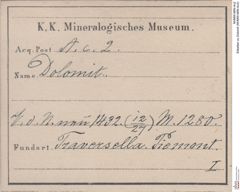 K. K. Mineralogisches Museum.
Acq. Post A. c. 2.
Name Dolomit.
1432. (12/27) M. 1280.
Fundort. Traversella. Piemont.
I